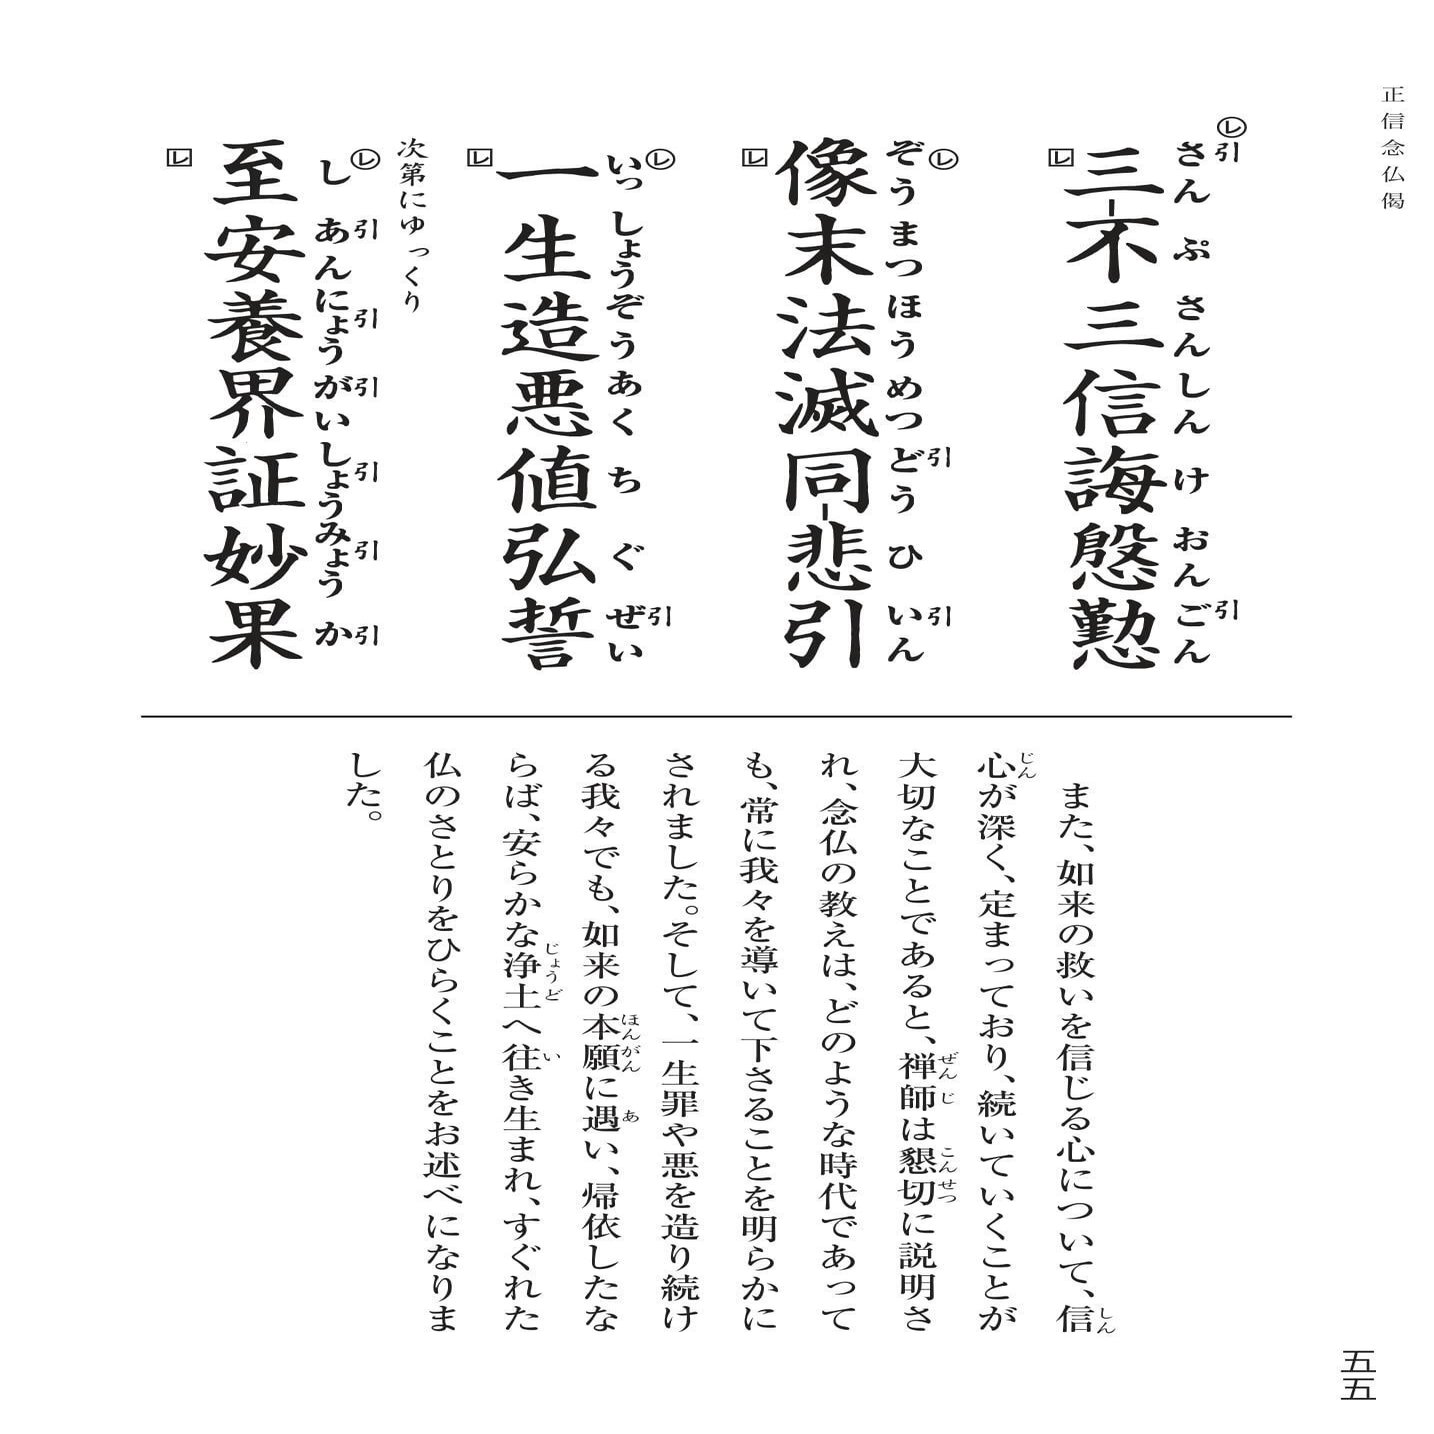 正信念仏偈
㋹引
さんぷさんしんけおんごん
引
三不三信誨慇懃
㋹
ぞうまつほうめつどうひいん
引
引
像末法滅同悲引
㋹
いっしょうぞうあくちぐぜい
引
一生造悪値弘誓
次第にゆっくり
㋹
引引引引引引
しあんにょうがいしょうみょうか
至安養界証妙果
また、如来の救いを信じる心について、信
しん
心が深く、定まっており、続いていくことが
じん
大切なことであると、禅師は懇切に説明さ
ぜんじ
こんせつ
れ、念仏の教えは、どのような時代であって
も、常に我々を導いて下さることを明らかに
されました。そして、一生罪や悪を造り続け
る我々でも、如来の本願に遇い、帰依したな
ほんがん
あ
らば、安らかな浄土へ往き生まれ、すぐれた
じょうど
い
仏のさとりをひらくことをお述べになりま
した。
五五